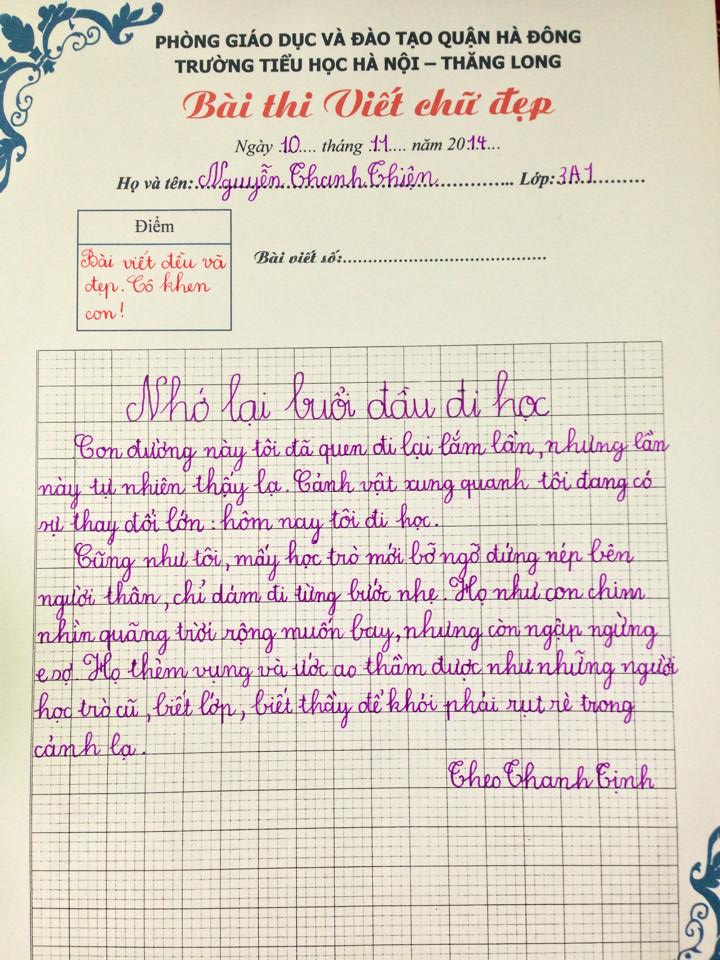 PHÒNG GIÁO DỤC VÀ ĐÀO TẠO QUẬN HÀ ĐÔNG
TRƯỜNG TIỂU HỌC HÀ NỘI – THĂNG LONG
Bài thi Viết chữ đẹp
Ngày .10.... tháng .11.... năm 2014...
Họ và tên: Nguyễn Thanh Thiện Lớp: 3A1
Điểm
Bài viết đều và
đẹp. Cô khen
con!
Bài viết số:
Nhớ lại buổi đầu đi học
Con đường này tôi đã quen đi lại lắm lần, nhưng lần
này tự nhiên thấy lạ. Cảnh vật xung quanh tôi đang có
sự thay đổi lớn: hôm nay tôi đi học.
Cũng như tôi, mấy học trò mới bỡ ngỡ đứng nép bên
người thân, chỉ dám đi từng bước nhẹ. Họ như con chim
nhìn quãng trời rộng muốn bay, nhưng còn ngập ngừng
e sợ. Họ thèm vụng và ước ao thầm được như những người
học trò cũ, biết lớp, biết thầy để khỏi phải rụt rè trong
cảnh lạ.
Theo Thanh Tịnh